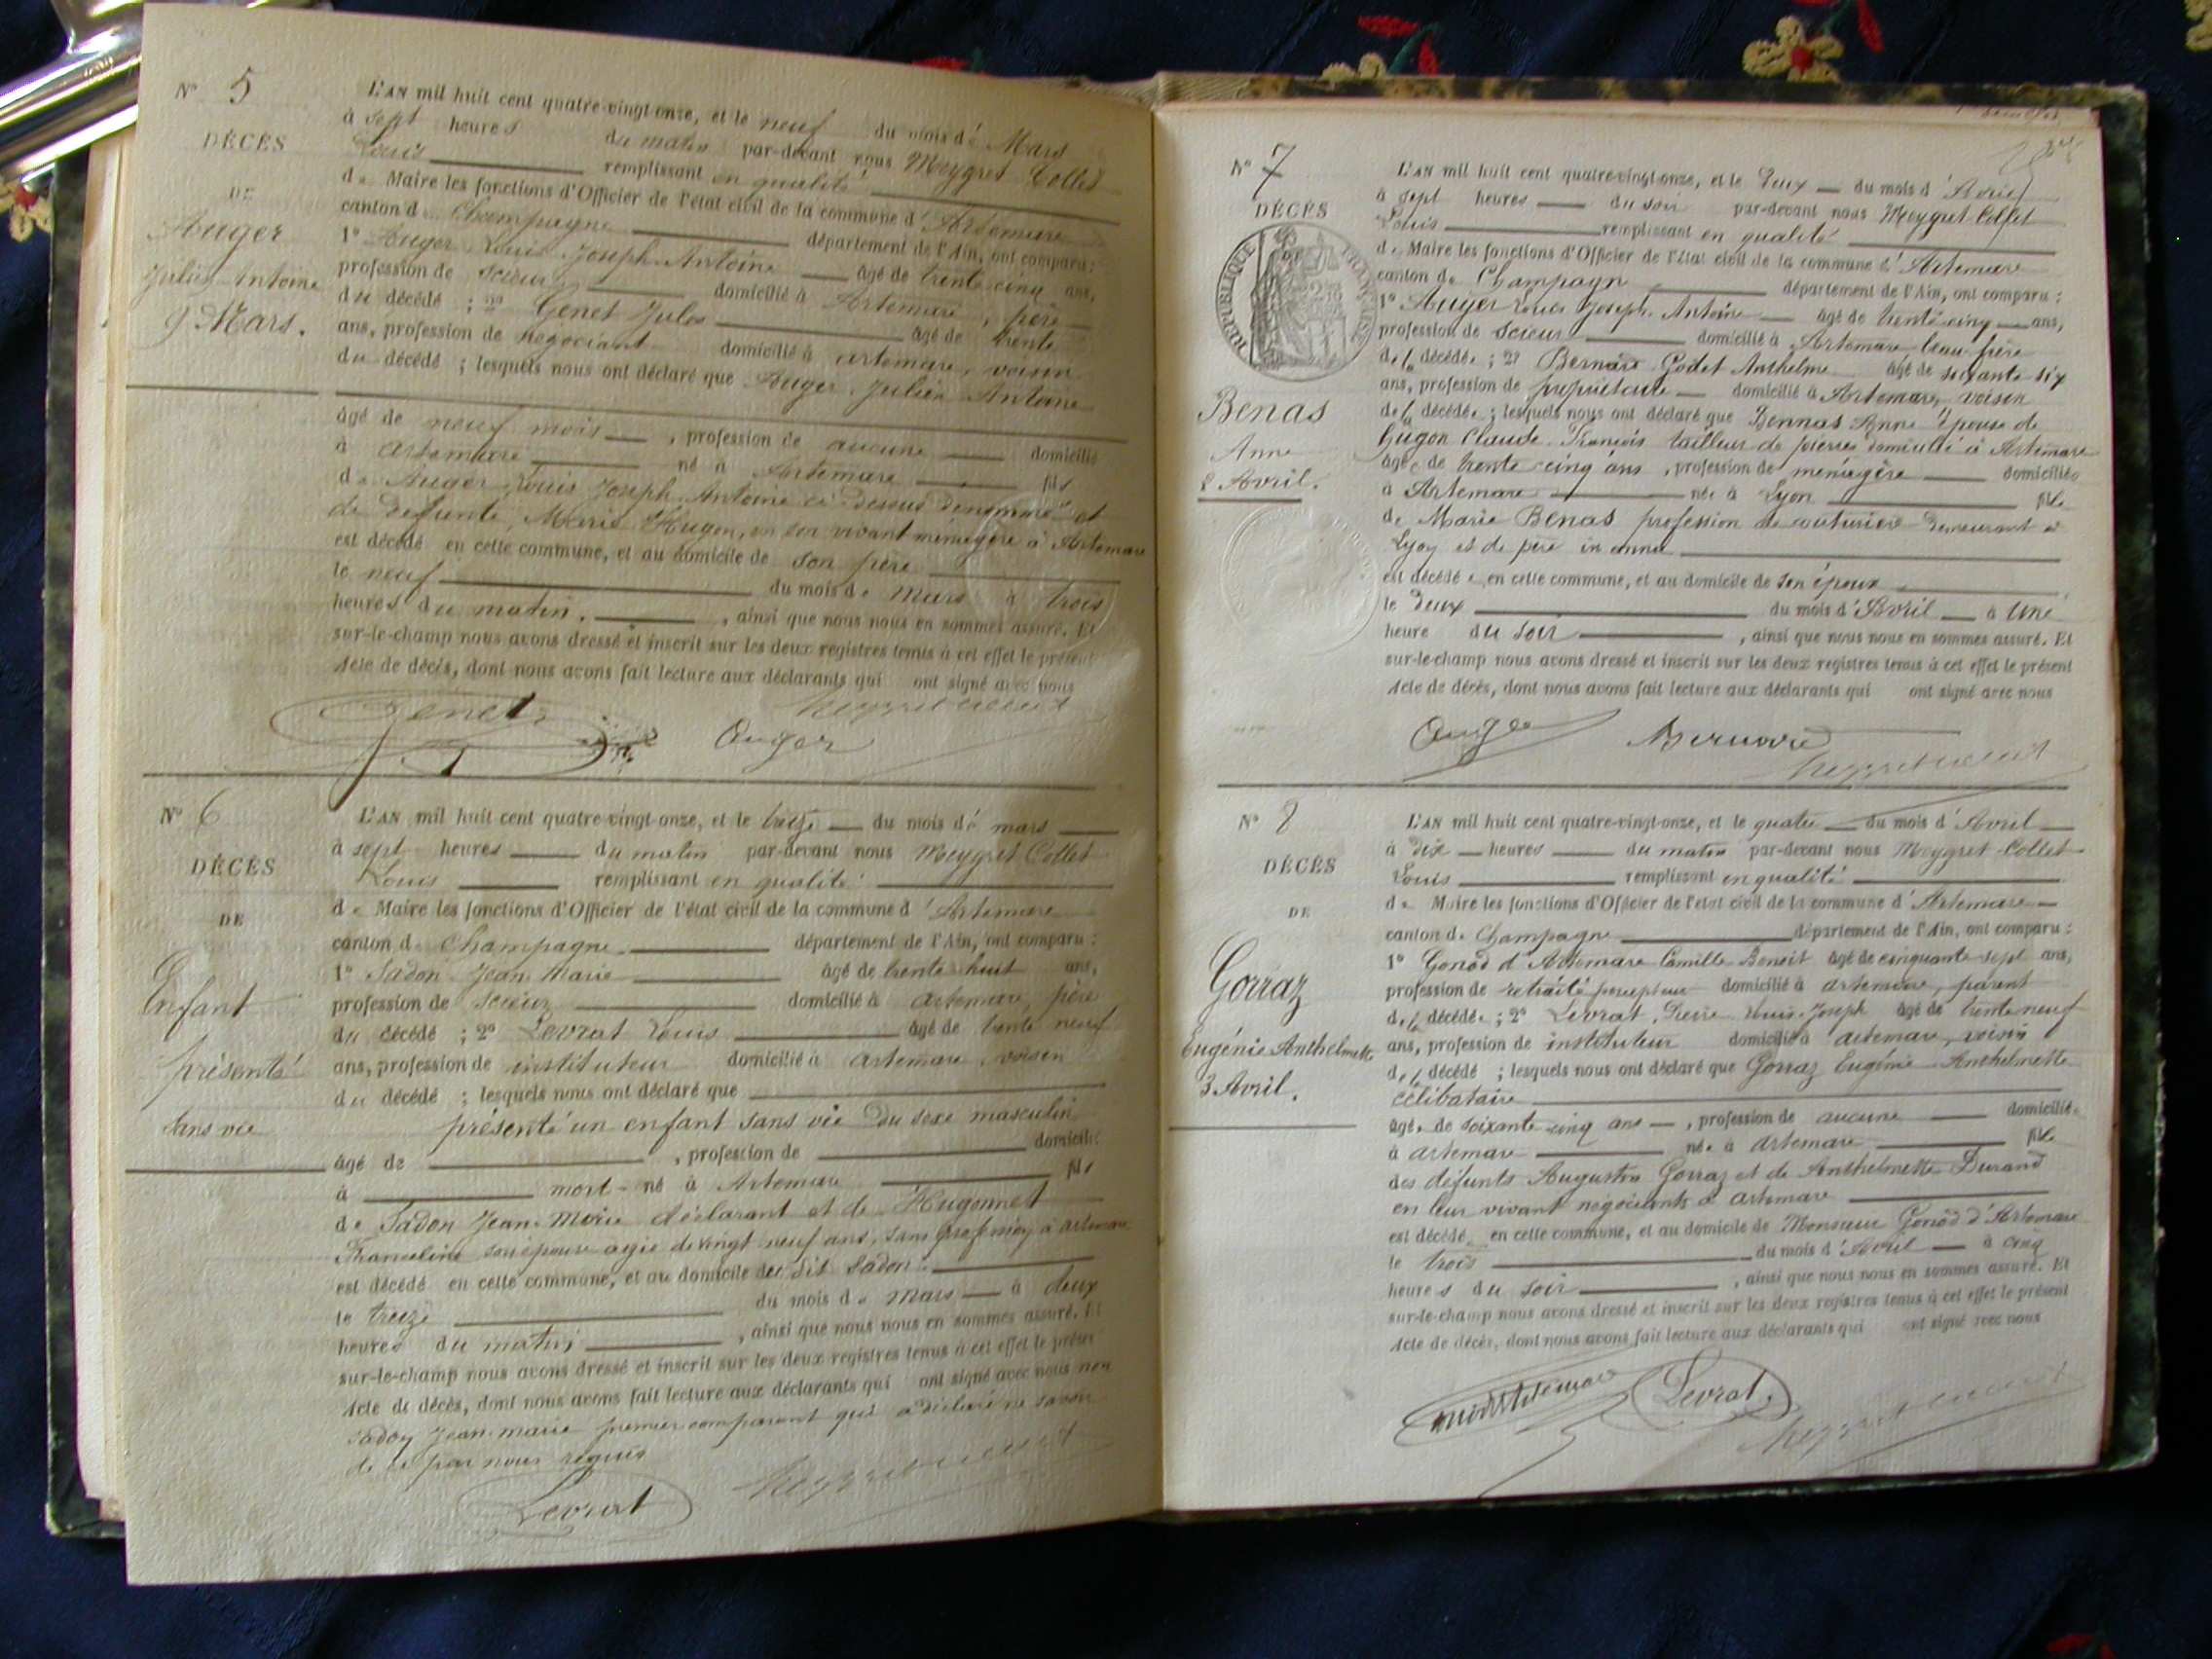 N° 5
DÉCÈS
DE
Auger
Julien Antoine
9 Mars.
L'AN mil huit cent quatre-vingt-onze, et le neuf du mois de Mars
à sept heures du matin par-devant nous Meygret Collet
Louis remplissant en qualité
de Maire les fonctions d'Officier de l'état civil de la commune d'Artemare
canton de Champagne département de l'Ain, ont comparu :
1° Auger Louis Joseph Antoine âgé de trente cinq ans,
profession de scieur domicilié à Artemare, père
du décédé ; 2° Genet Jules âgé de trente
ans, profession de négociant domicilié à artemare, voisin
du décédé ; lesquels nous ont déclaré que Auger Julien Antoine
âgé de neuf mois, profession de aucune domicilié
à artemare né à Artemare fils
de Auger Louis Joseph Antoine ci dessus dénommé et
de défunte Marie Hugon, en son vivant ménagère à Artemare
est décédé en cette commune, et au domicile de son père
le neuf du mois de Mars à trois
heures du matin. , ainsi que nous nous en sommes assuré. Et
sur-le-champ nous avons dressé et inscrit sur les deux registres tenus à cet effet le présent
Acte de décès, dont nous avons fait lecture aux déclarants qui ont signé avec nous
Genet Auger Meygret Collet
N° 6
DÉCÈS
DE
Enfant
présenté
sans vie
L'AN mil huit cent quatre-vingt-onze, et le treize du mois de mars
à sept heures du matin par-devant nous Meygret Collet
Louis remplissant en qualité
de Maire les fonctions d'Officier de l'état civil de la commune d'Artemare
canton de Champagne département de l'Ain, ont comparu :
1° Sadon Jean Marie âgé de trente huit ans,
profession de scieur domicilié à artemare, père
du décédé ; 2° Levrat Louis âgé de trente neuf
ans, profession de instituteur domicilié à artemare, voisin
du décédé ; lesquels nous ont déclaré que
présenté un enfant sans vie du sexe masculin
âgé de , profession de domicilié
à mort-né à Artemare fils
de Sadon Jean Marie déclarant et de Hugonnet
Franceline son épouse agée de vingt neuf ans, sans profession à artemare
est décédé en cette commune, et au domicile du dit Sadon.
le treize du mois de mars à deux
heures du matin , ainsi que nous nous en sommes assuré. Et
sur-le-champ nous avons dressé et inscrit sur les deux registres tenus à cet effet le présent
Acte de décès, dont nous avons fait lecture aux déclarants qui ont signé avec nous non
Sadon Jean Marie premier comparant qui a déclaré ne savoir
de ce par nous requis
Levrat Meygret Collet
N° 7
DÉCÈS
RÉPUBLIQUE FRANÇAISE
Benas
Anne
2 Avril.
L'AN mil huit cent quatre-vingt-onze, et le deux du mois d'Avril
à sept heures du soir par-devant nous Meygret Collet
Louis remplissant en qualité
de Maire les fonctions d'Officier de l'état civil de la commune d'Artemare
canton de Champagn département de l'Ain, ont comparu :
1° Auger Louis Joseph Antoine âgé de trente cinq ans,
profession de scieur domicilié à Artemare beau-frère
de la décédée ; 2° Bernard Godet Anthelme âgé de soixante six
ans, profession de propriétaire domicilié à Artemare, voisin
de la décédée ; lesquels nous ont déclaré que Bennas Anne épouse de
Gugon Claude François tailleur de pierres domicilié à Artemare
âgée de trente-cinq ans, profession de ménagère domiciliée
à Artemare née à Lyon fille
de Marie Benas profession de couturière demeurant à
Lyon et de père inconnu
est décédée en cette commune, et au domicile de son époux
le deux du mois d'Avril à une
heure du soir , ainsi que nous nous en sommes assuré. Et
sur-le-champ nous avons dressé et inscrit sur les deux registres tenus à cet effet le présent
Acte de décès, dont nous avons fait lecture aux déclarants qui ont signé avec nous
Auger Bernard
Meygret Collet
N° 8
DÉCÈS
DE
Gorraz
Eugénie Anthelmette
3 Avril.
L'AN mil huit cent quatre-vingt-onze, et le quatre du mois d'Avril
à dix heures du matin par-devant nous Meygret Collet
Louis remplissant en qualité
de Maire les fonctions d'Officier de l'état civil de la commune d'Artemare
canton de Champagne département de l'Ain, ont comparu :
1° Gonod d'Artemare Camille Benoit âgé de cinquante sept ans,
profession de retraité percepteur domicilié à artemare, parent
de la décédée ; 2° Levrat Pierre Louis Joseph âgé de trente neuf
ans, profession de instituteur domicilié à artemare, voisin
de la décédé ; lesquels nous ont déclaré que Gorraz Eugénie Anthelmette
célibataire
âgée de soixante cinq ans, profession de aucune domiciliée
à artemare née à artemare fille
des défunts Augustin Gorraz et de Anthelmette Durand
en leur vivant négociants à artemare
est décédée en cette commune, et au domicile de Monsieur Gonod d'Artemare
le trois du mois d'Avril à cinq
heures du soir , ainsi que nous nous en sommes assuré. Et
sur-le-champ nous avons dressé et inscrit sur les deux registres tenus à cet effet le présent
Acte de décès, dont nous avons fait lecture aux déclarants qui ont signé avec nous
Levrat Meygret Collet